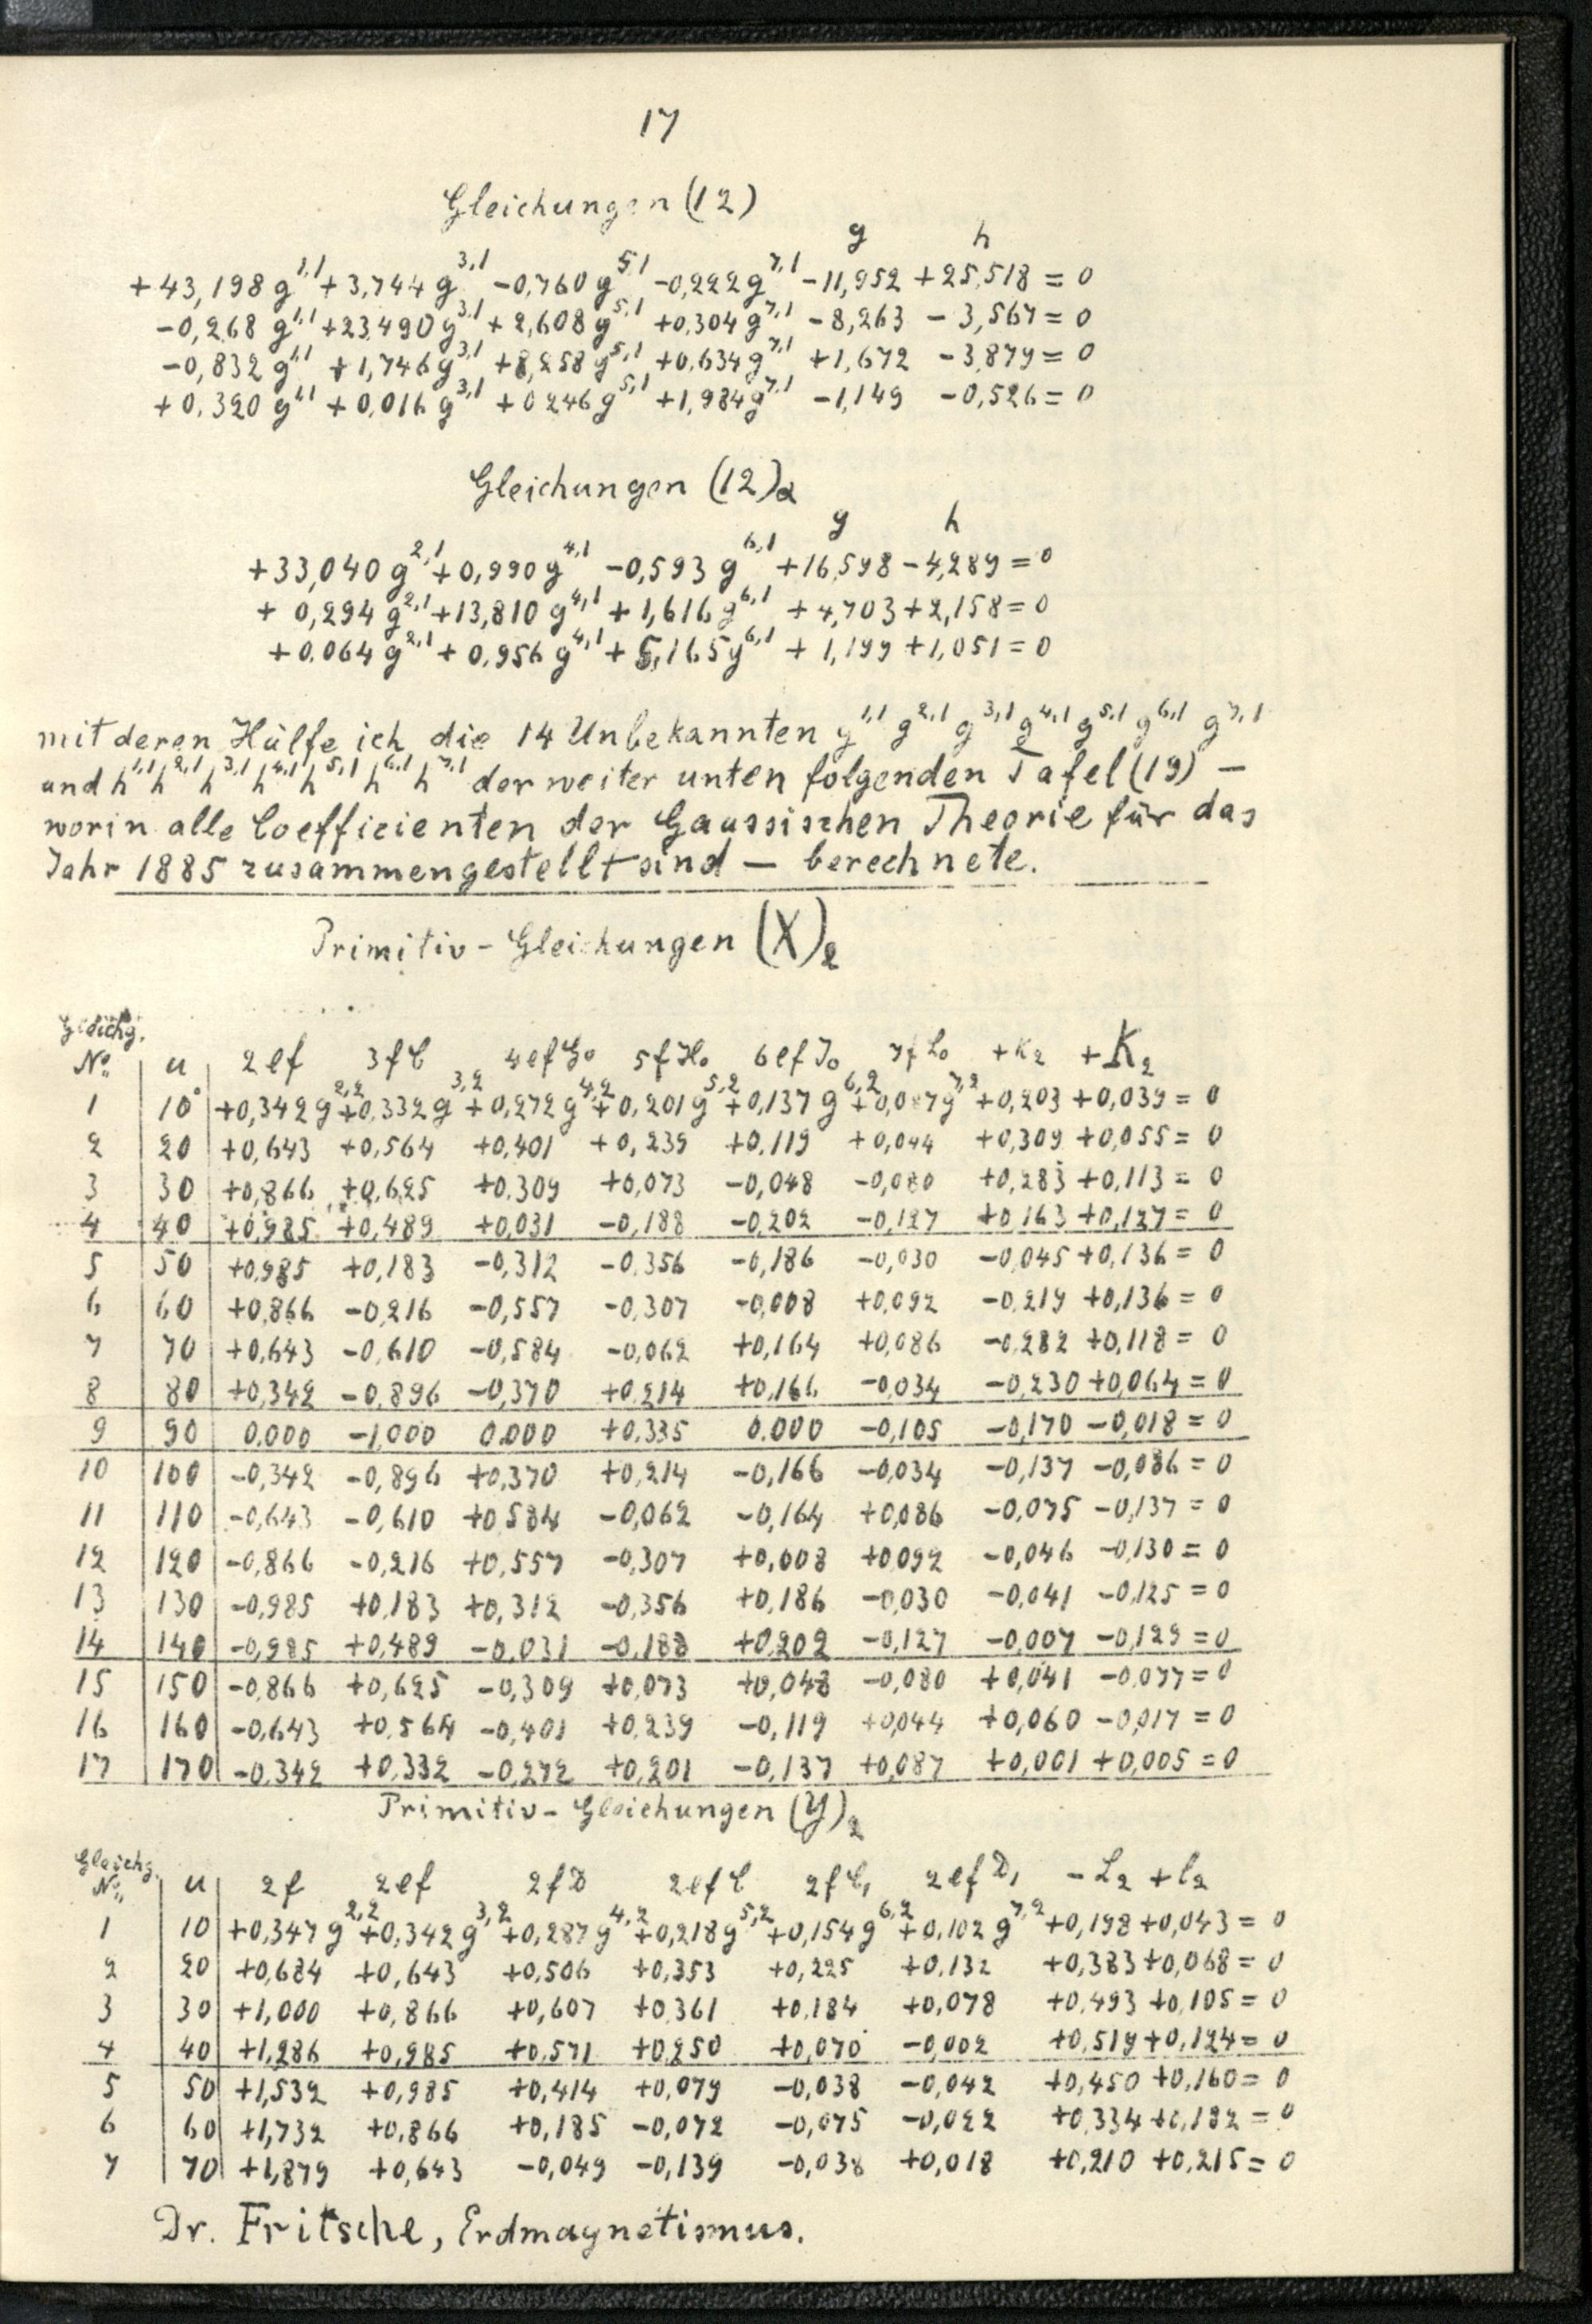 17
Gleichungen (12)
g h
+43,198 g^1,1 +3,744 g^3,1 -0,760 g^5,1 -0,222 g^7,1 -11,952 +25,518 = 0
-0,268 g^1,1 +23490 g^3,1 +2,608 g^5,1 +0,304 g^7,1 -8,263 -3,567 = 0
-0,832 g^1,1 +1,746 g^3,1 +8,258 g^5,1 +0,634 g^7,1 +1,672 -3,879 = 0
+0,320 g^1,1 +0,016 g^3,1 +0246 g^5,1 +1,984 g^7,1 -1,149 -0,526 = 0
Gleichungen (12)2
g h
+33,040 g^2,1 +0,990 g^4,1 -0,593 g^6,1 +16,598 -4,289 = 0
+0,294 g^2,1 +13,810 g^4,1 +1,616 g^6,1 +4,703 +2,158 = 0
+0,064 g^2,1 +0,956 g^4,1 +5,165 g^6,1 +1,199 +1,051 = 0
mit deren Hülfe ich die 14 Unbekannten g^1,1 g^2,1 g^3,1 g^4,1 g^5,1 g^6,1 g^7,1
und h^1,1 h^2,1 h^3,1 h^4,1 h^5,1 h^6,1 h^7,1 der weiter unten folgenden Tafel (19) –
worin alle Coefficienten der Gaussischen Theorie für das
Jahr 1885 zusammengestellt sind – berechnete.
Primitiv-Gleichungen (X)2
Gleichg.
No. u 2ef 3fC 4efG0 5fH0 6efJ0 7fL0 +K2 +K2
1 10° +0,342 g^2,2 +0,332 g^3,2 +0,272 g^4,2 +0,201 g^5,2 +0,137 g^6,2 +0,087 g^7,2 +0,203 +0,039 = 0
2 20 +0,643 +0,564 +0,401 +0,239 +0,119 +0,044 +0,309 +0,055 = 0
3 30 +0,866 +0,625 +0,309 +0,073 -0,048 -0,080 +0,283 +0,113 = 0
4 40 +0,985 +0,489 +0,031 -0,188 -0,202 -0,127 +0163 +0,127 = 0
5 50 +0,985 +0,183 -0,312 -0,356 -0,186 -0,030 -0,045 +0,136 = 0
6 60 +0,866 -0,216 -0,557 -0,307 -0,008 +0,092 -0,219 +0,136 = 0
7 70 +0,643 -0,610 -0,584 -0,062 +0,164 +0,086 -0,282 +0,118 = 0
8 80 +0,342 -0,896 -0,370 +0,214 +0,166 -0,034 -0,230 +0,064 = 0
9 90 0,000 -1,000 0,000 +0,335 0,000 -0,105 -0,170 -0,018 = 0
10 100 -0,342 -0,896 +0,370 +0,214 -0,166 -0,034 -0,137 -0,086 = 0
11 110 -0,643 -0,610 +0584 -0,062 -0,164 +0,086 -0,075 -0,137 = 0
12 120 -0,866 -0,216 +0,557 -0,307 +0,008 +0,092 -0,046 -0,130 = 0
13 130 -0,985 +0,183 +0,312 -0,356 +0,186 -0,030 -0,041 -0,125 = 0
14 140 -0,985 +0,489 -0,031 -0,188 +0,202 -0,127 -0,007 -0,129 = 0
15 150 -0,866 +0,625 -0,309 +0,073 +0,048 -0,080 +0,041 -0,077 = 0
16 160 -0,643 +0,564 -0,401 +0,239 -0,119 +0,044 +0,060 -0,017 = 0
17 170 -0,342 +0,332 -0,272 +0,201 -0,137 +0,087 +0,001 +0,005 = 0
Primitiv-Gleichungen (Y)2
Gleichg.
No. u 2f 2ef 2fD 2efC 2fC1 2efD1 -L2 +l2
1 10 +0,347 g^2,2 +0,342 g^3,2 +0,287 g^4,2 +0,218 g^5,2 +0,154 g^6,2 +0,102 g^7,2 +0,198 +0,043 = 0
2 20 +0,684 +0,643 +0,506 +0,353 +0,225 +0,132 +0,383 +0,068 = 0
3 30 +1,000 +0,866 +0,607 +0,361 +0,184 +0,078 +0,493 +0,105 = 0
4 40 +1,286 +0,985 +0,571 +0,250 +0,070 -0,002 +0,519 +0,124 = 0
5 50 +1,532 +0,985 +0,414 +0,079 -0,038 -0,042 +0,450 +0,160 = 0
6 60 +1,732 +0,866 +0,185 -0,072 -0,075 -0,022 +0,334 +0,192 = 0
7 70 +1,879 +0,643 -0,049 -0,139 -0,038 +0,018 +0,210 +0,215 = 0
Dr. Fritsche, Erdmagnetismus.